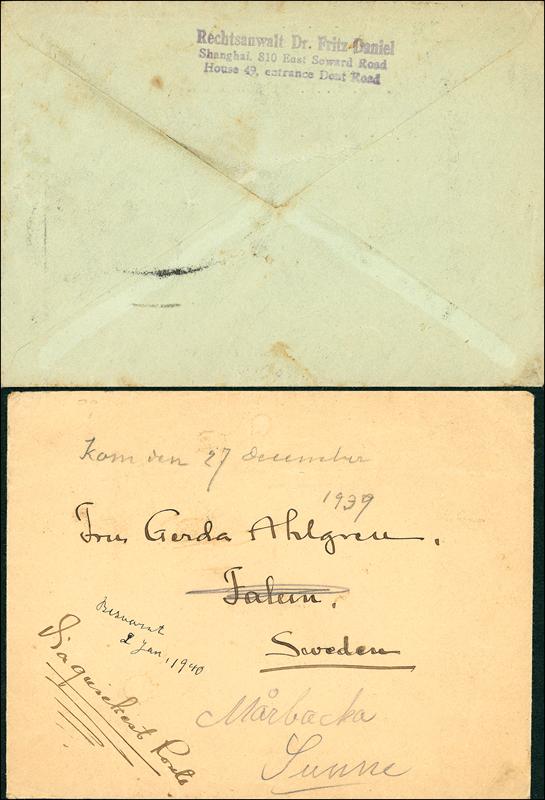 Rechtsanwalt Dr. Fritz Daniel
Shanghai. 810 East Seward Road
House 49, entrance Dent Road
Kom den 27 december
1939
Fru Gerda Ahlgren,
Falun,
Sweden
Besvarat
2 Jan, 1940
Via quickest Route
Mårbacka
Sunne